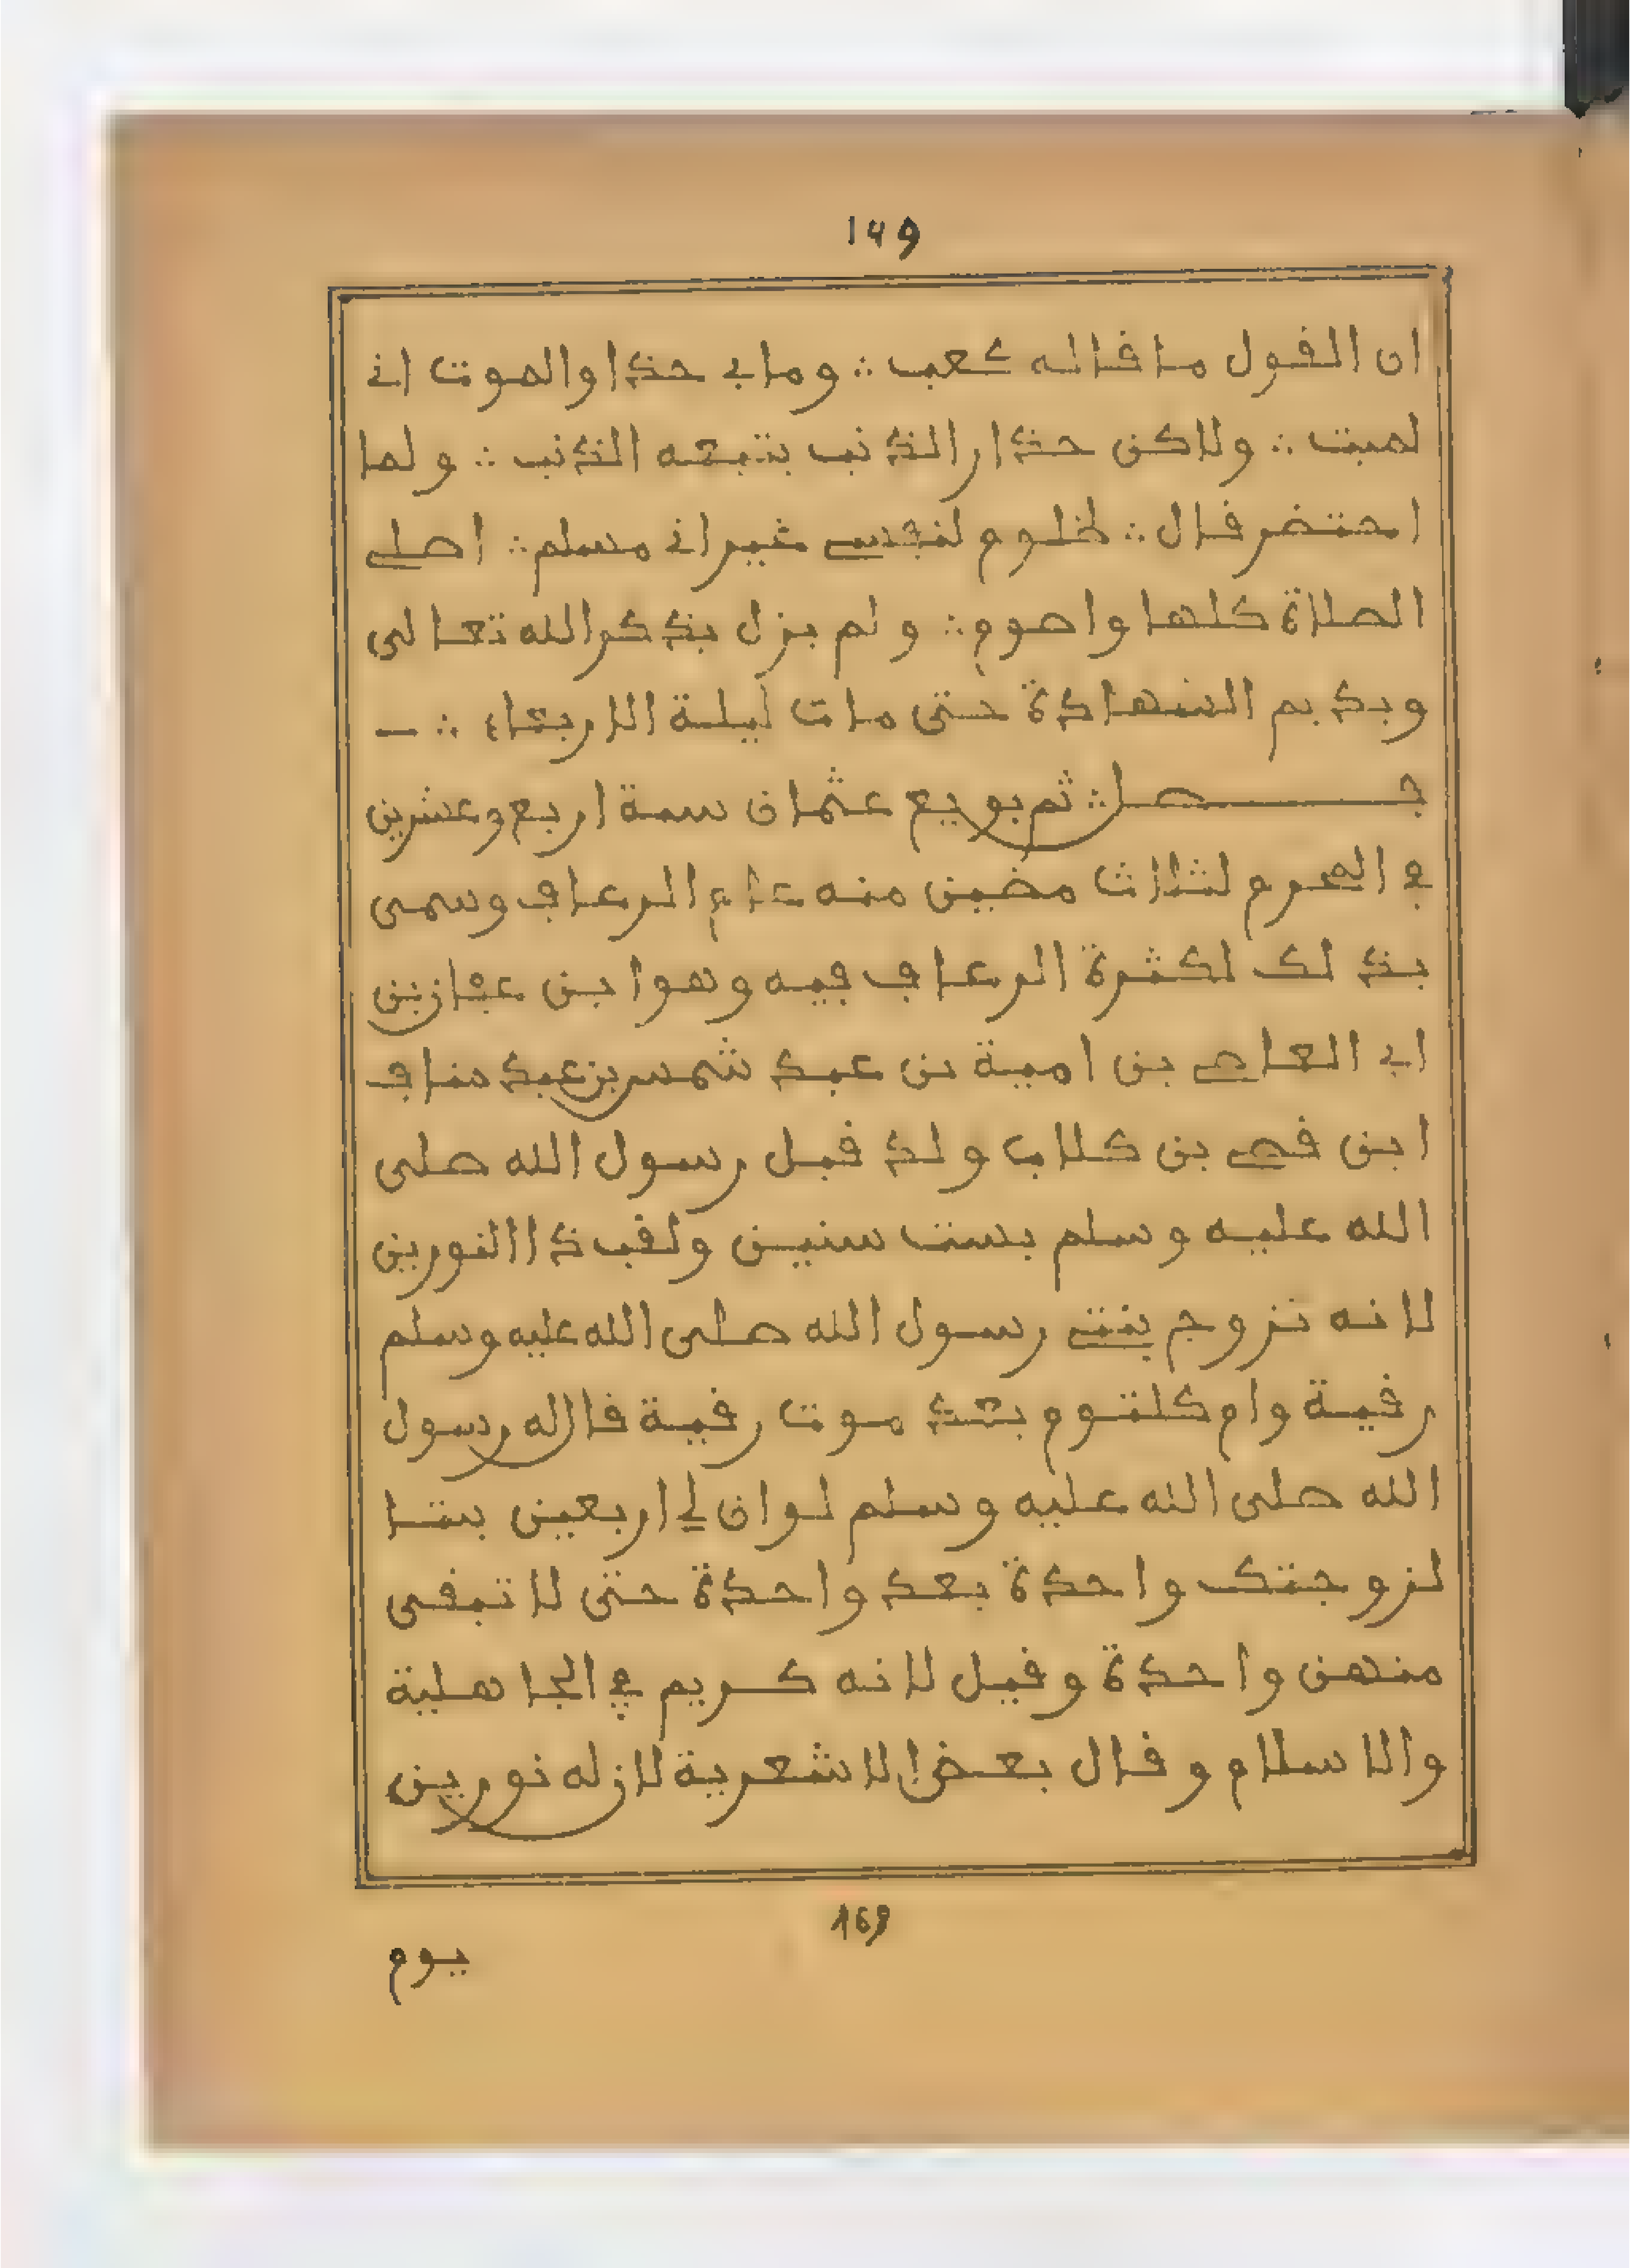 149
ان القول ما قاله كعب ∴ وما بي حذا والموت اني
لميت ∴ ولاكن حذار الذنب يتبعه الذنب ∴ ولما
احتضر قال ∴ ظلوم لنفسي غير اني مسلم ∴ اصلي
الصلاة كلها واصوم ∴ ولم يزل يذكر الله تعالى
ويديم الشهادة حتى مات ليلة الاربعاء ∴
فصل ∴ ثم بويع عثمان سنة اربع وعشرين
في المحرم لثلاث مضين منه عام الرعاف وسمي
بذلك لكثرة الرعاف فيه وهو ابن عفان بن
ابي العاصي بن امية بن عبد شمس بن عبد مناف
ابن قصي بن كلاب ولد قبل رسول الله صلى
الله عليه وسلم بست سنين ولقب ذا النورين
لانه تزوج بنتي رسول الله صلى الله عليه وسلم
رقية وام كلثوم بعد موت رقية قال له رسول
الله صلى الله عليه وسلم لو ان لي اربعين بنتا
لزوجتك واحدة بعد واحدة حتى لا تبقى
منهن واحدة وقيل لانه كريم في الجاهلية
والاسلام وقال بعض الاشعرية لان له نورين
169
يوم